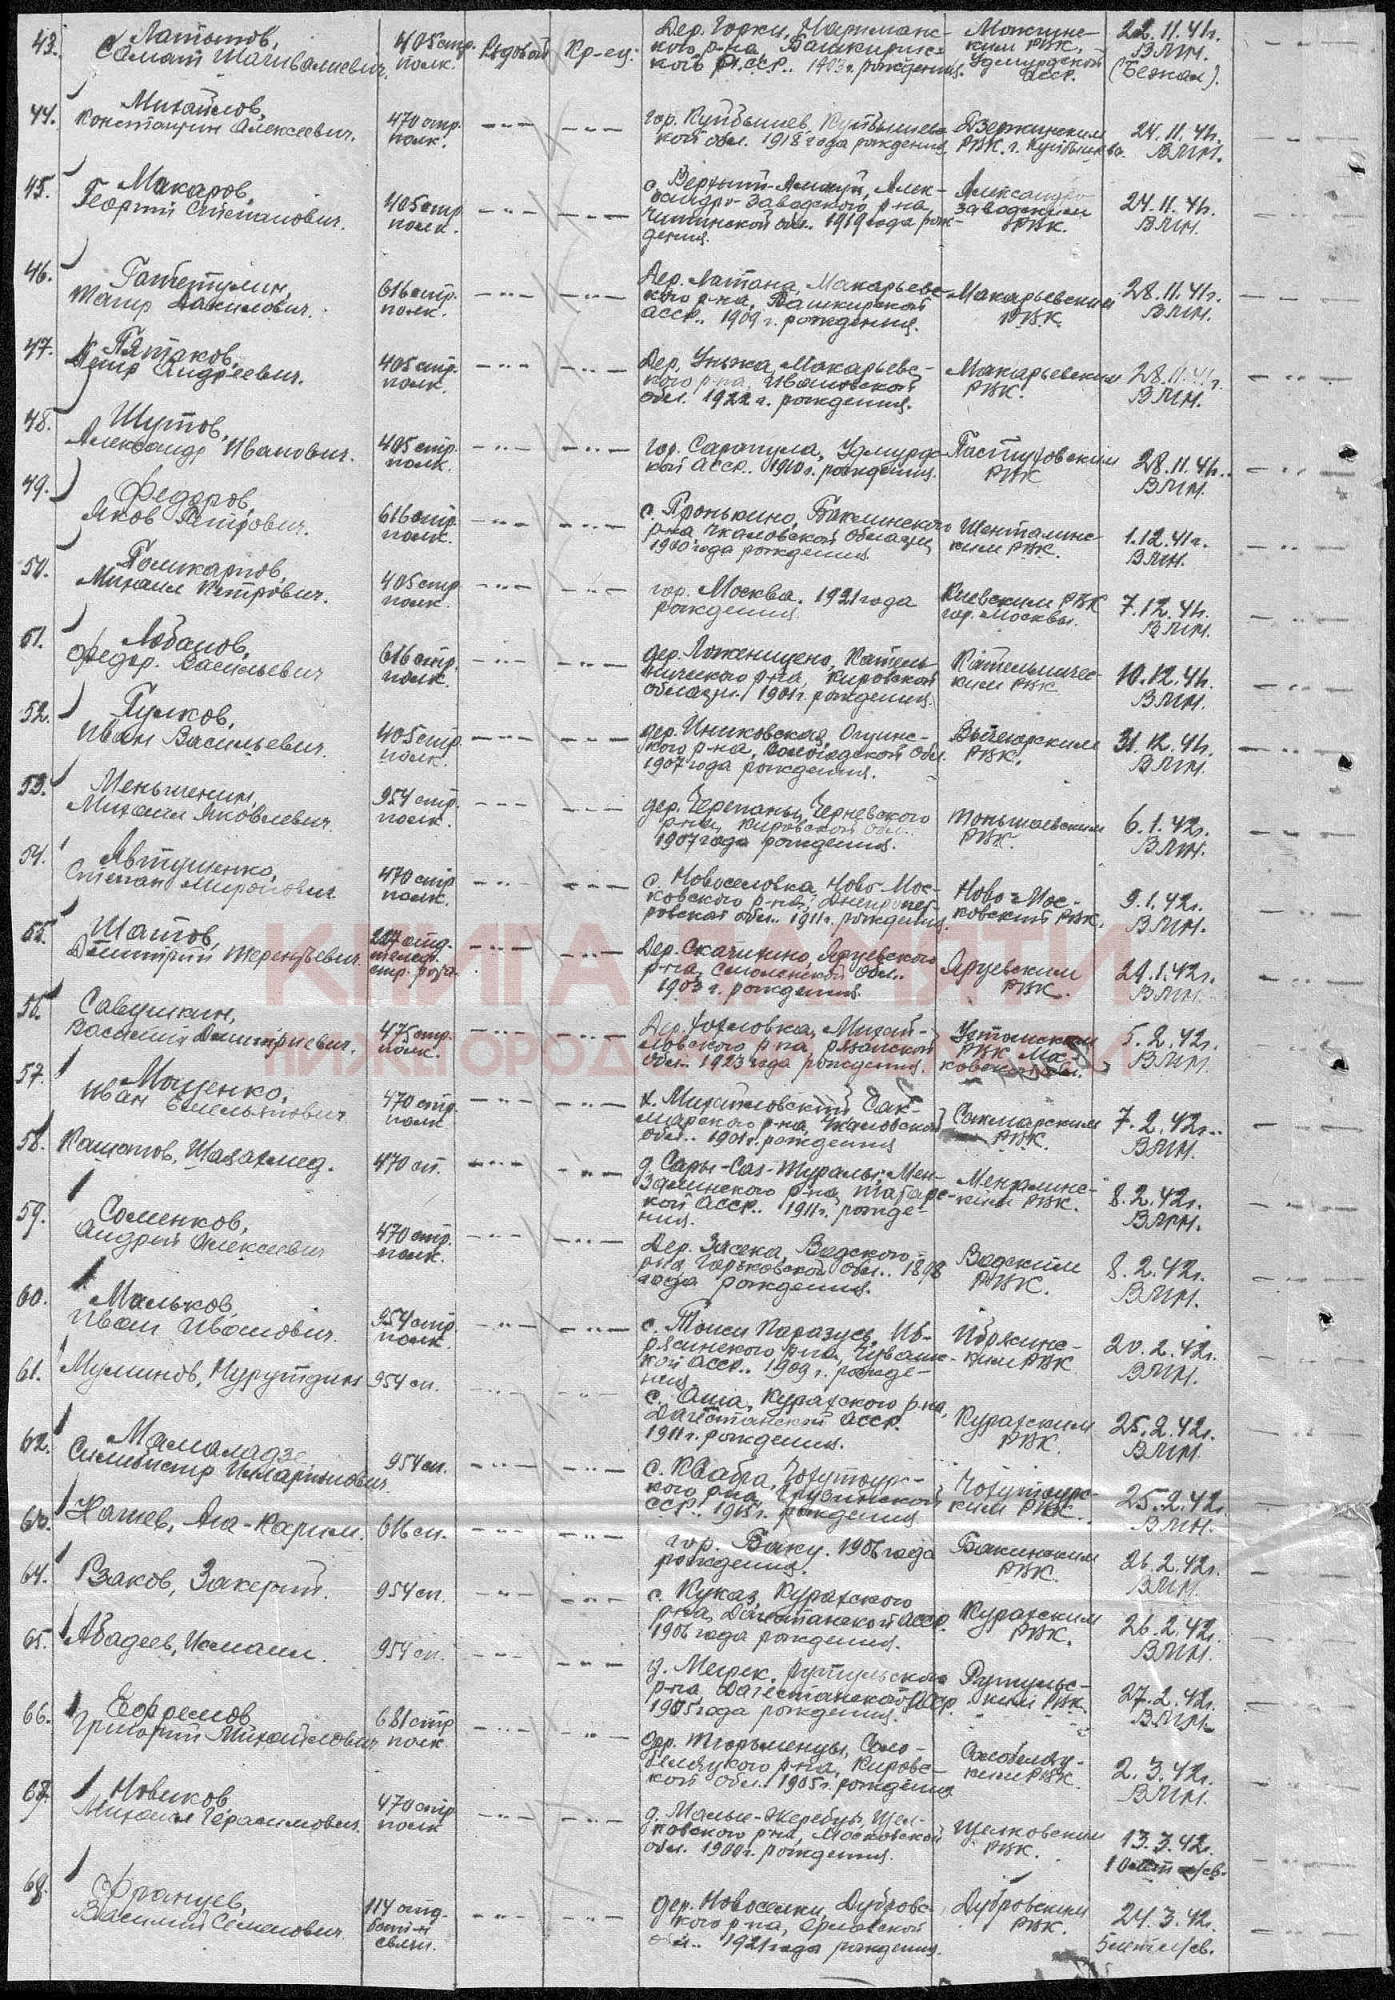 43. Латыпов, Самат Шагивалиевич. 405 стр. полк. Рядовой Кр-ец. Дер. Горки, р-на, Башкирской АССР.. 1903 г. рождения. РВК, Удмуртской АССР. 22.11.41г. ВМН. (Бежал).
44. Михайлов, Константин Алексеевич. 470 стр. полк. гор. Куйбышев, Куйбышевской обл. 1918 года рождения. Дзержинским РВК. г. Куйбышева. 24.11.41г. ВМН.
45. Макаров, Георгий Степанович. 405 стр. полк. с. Верхний-, Александро-Заводского р-на, Читинской обл.. 1919 года рождения. Александро-заводским РВК. 24.11.41г. ВМН.
46. Тагир Вакилович. 616 стр. полк. Дер. Макарьевского р-на, Башкирской АССР.. 1909 г. рождения. Макарьевским РВК. 28.11.41г. ВМН.
47. Пятаков, Петр Андреевич. 405 стр. полк. Дер. Унжа, Макарьевского р-на, Ивановской обл. 1922 г. рождения. Макарьевским РВК. 28.11.41г. ВМН.
48. Шутов, Александр Иванович. 405 стр. полк. гор. Сарапула, Удмуртской АССР. 1910 г. рождения. Пастуховским РВК 28.11.41г. ВМН.
49. Федоров, Яков Петрович. 616 стр. полк. с. Пронькино, р-на Чкаловской области, 1900 года рождения. Шенталинским РВК. 1.12.41г. ВМН.
50. Михаил Петрович. 405 стр. полк. гор. Москва. 1921 года рождения. Киевским РВК гор. Москвы. 7.12.41г. ВМН.
51. Лобанов, Федор. Васильевич 616 стр. полк. дер. Котельнического р-на, Кировской области. 1901 г. рождения. Котельническим РВК. 10.12.41г. ВМН.
52. Пулков, Иван Васильевич. 405 стр. полк. дер. р-на, Вологодской обл. 1907 года рождения. Вытегорским РВК. 31.12.41г. ВМН.
53. Меньшенин, Михаил Яковлевич. 954 стр. полк. дер. Черепаны, Черневского р-на, Кировской обл.. 1907 года рождения. Тоншаевским РВК. 6.1.42г. ВМН.
54. Явтушенко, Степан Миронович. 470 стр. полк. с. Новоселовка, Ново-Московского р-на, Днепропетровской обл.. 1911 г. рождения. Ново-Московский РВК. 9.1.42г. ВМН.
55. Шатов, Дмитрий Терентьевич. рота. Дер. Скачихино, р-на, Смоленской обл.. 1903 г. рождения. РВК. 29.1.42г. ВМН.
56. Савушкин, Василий Дмитриевич. стр. полк. Дер. Михайловского р-на, Рязанской обл.. 1923 года рождения. Ухтомским РВК Московской обл. 5.2.42г. ВМН.
57. Мощенко, Иван Емельянович 470 стр. полк х. Михайловский Сакмарского р-на, Чкаловской обл.. 1901 г. рождения Сакмарским РВК. 7.2.42г. ВМН.
58. Кашапов, Шаяхмед. 470 сп. д. Сары-Саз-Муралы, Мензелинского р-на, Татарской АССР.. 1911 г. рождения. Мензелинским РВК. 8.2.42г. ВМН.
59. Соменков, Андрей Алексеевич 470 стр. полк. Дер. Засека, Вадского р-на Горьковской обл.. 1898 года рождения. Вадским РВК. 8.2.42г. ВМН.
60. Мальков, Иван Иванович. 954 стр. полк. с. Тойси Паразуси, Ибресинского р-на, Чувашской АССР.. 1909 г. рождения. РВК 20.2.42г. ВМН.
61. Муминов, Нурутдин 954 сп. с. Курахского р-на, Дагестанской АССР. 1911 г. рождения. Курахским РВК. 25.2.42г. ВМН.
62. Мамаладзе, Сильвистр 954 сп. с. Квабга, р-на, Грузинской ССР.. 1915 г. рождения РВК. 25.2.42г. ВМН.
63. Нагиев, Ага-Карим. 616 сп. гор. Баку. 1906 года рождения. Бакинским РВК. 26.2.42г. ВМН.
64. Рзаков, Закерий. 954 сп. с. Куказ, Курахского р-на, Дагестанской АССР. 1906 года рождения. Курахским РВК. 26.2.42г. ВМН.
65. Абадеев, Исмаил. 954 сп. д. Рутульского р-на Дагестанской АССР. 1905 года рождения. Рутульским РВК. 27.2.42г. ВМН.
66. Ефремов, Григорий Михайлович 681 стр. полк. дер. р-на, Кировской обл.. 1905 г. рождения РВК. 2.3.42г. ВМН.
67. Новиков Михаил Герасимович. 470 стр. полк д. Малые-Жеребцы, Щелковского р-на, Московской обл. 1900 г. рождения. Щелковским РВК. 13.3.42г. 10 лет л/св.
68. Францев, Василий Семенович 114 отд. бат-н связи. дер. Новоселки, Дубровского р-на, Орловской обл.. 1921 года рождения. Дубровским РВК. 24.3.42г. 5 лет л/св.
КНИГА ПАМЯТИ
НИЖЕГОРОДСКОЙ ОБЛАСТИ